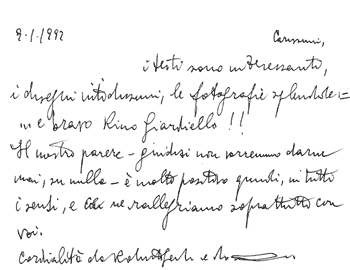 9.1.1992 Carissimi,
i testi sono interessanti,
i disegni nitidissimi, le fotografie splendide =
... e bravo Rino Giardiello !!
Il nostro parere - giudizi non vorremmo darne
mai, su nulla - è molto positivo quindi, in tutti
i sensi, e ce ne rallegriamo soprattutto con
voi.
Cordialità da e